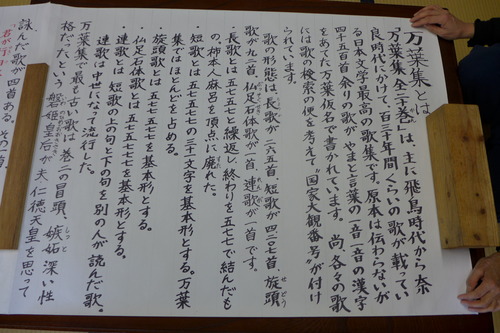 万葉集とは
「万葉集全二十巻」は、主に飛鳥時代から奈
良時代にかけて、百三十年間くらいの歌が載ってい
る日本文学最高の歌集です。原本は伝わらないが
四千五百首余りの歌が やまと言葉の一音一音の漢字
をあてた万葉仮名で書かれています。尚、各々の歌
には歌の検索の便を考えて"国家大観番号"が付け
られています。
歌の形態は、長歌が二六五首、短歌が四二〇七首、旋頭
せどう
歌が六二首、仏足石体歌が一首、連歌が一首です。
・長歌とは五七五七と繰返し、終わりを五七七で結んだも
の。柿本人麻呂を頂点に廃れた。
・短歌とは 五七五七七の三十一文字を基本形とする。万葉
集ではほとんどを占める。
・旋頭歌とは 五七七五七七を基本形とする。
・仏足石体歌とは 五七五七七七を基本形とする。
・連歌とは 短歌の上の句と下の句を別の人が詠んだ歌。
連歌は中世になって流行した。
万葉集で最も古い歌は、巻二の冒頭、嫉妬深い性
しっと
格だったという 磐姫皇后が 夫 仁徳天皇を思って
詠んだ歌が四首ある。その一首